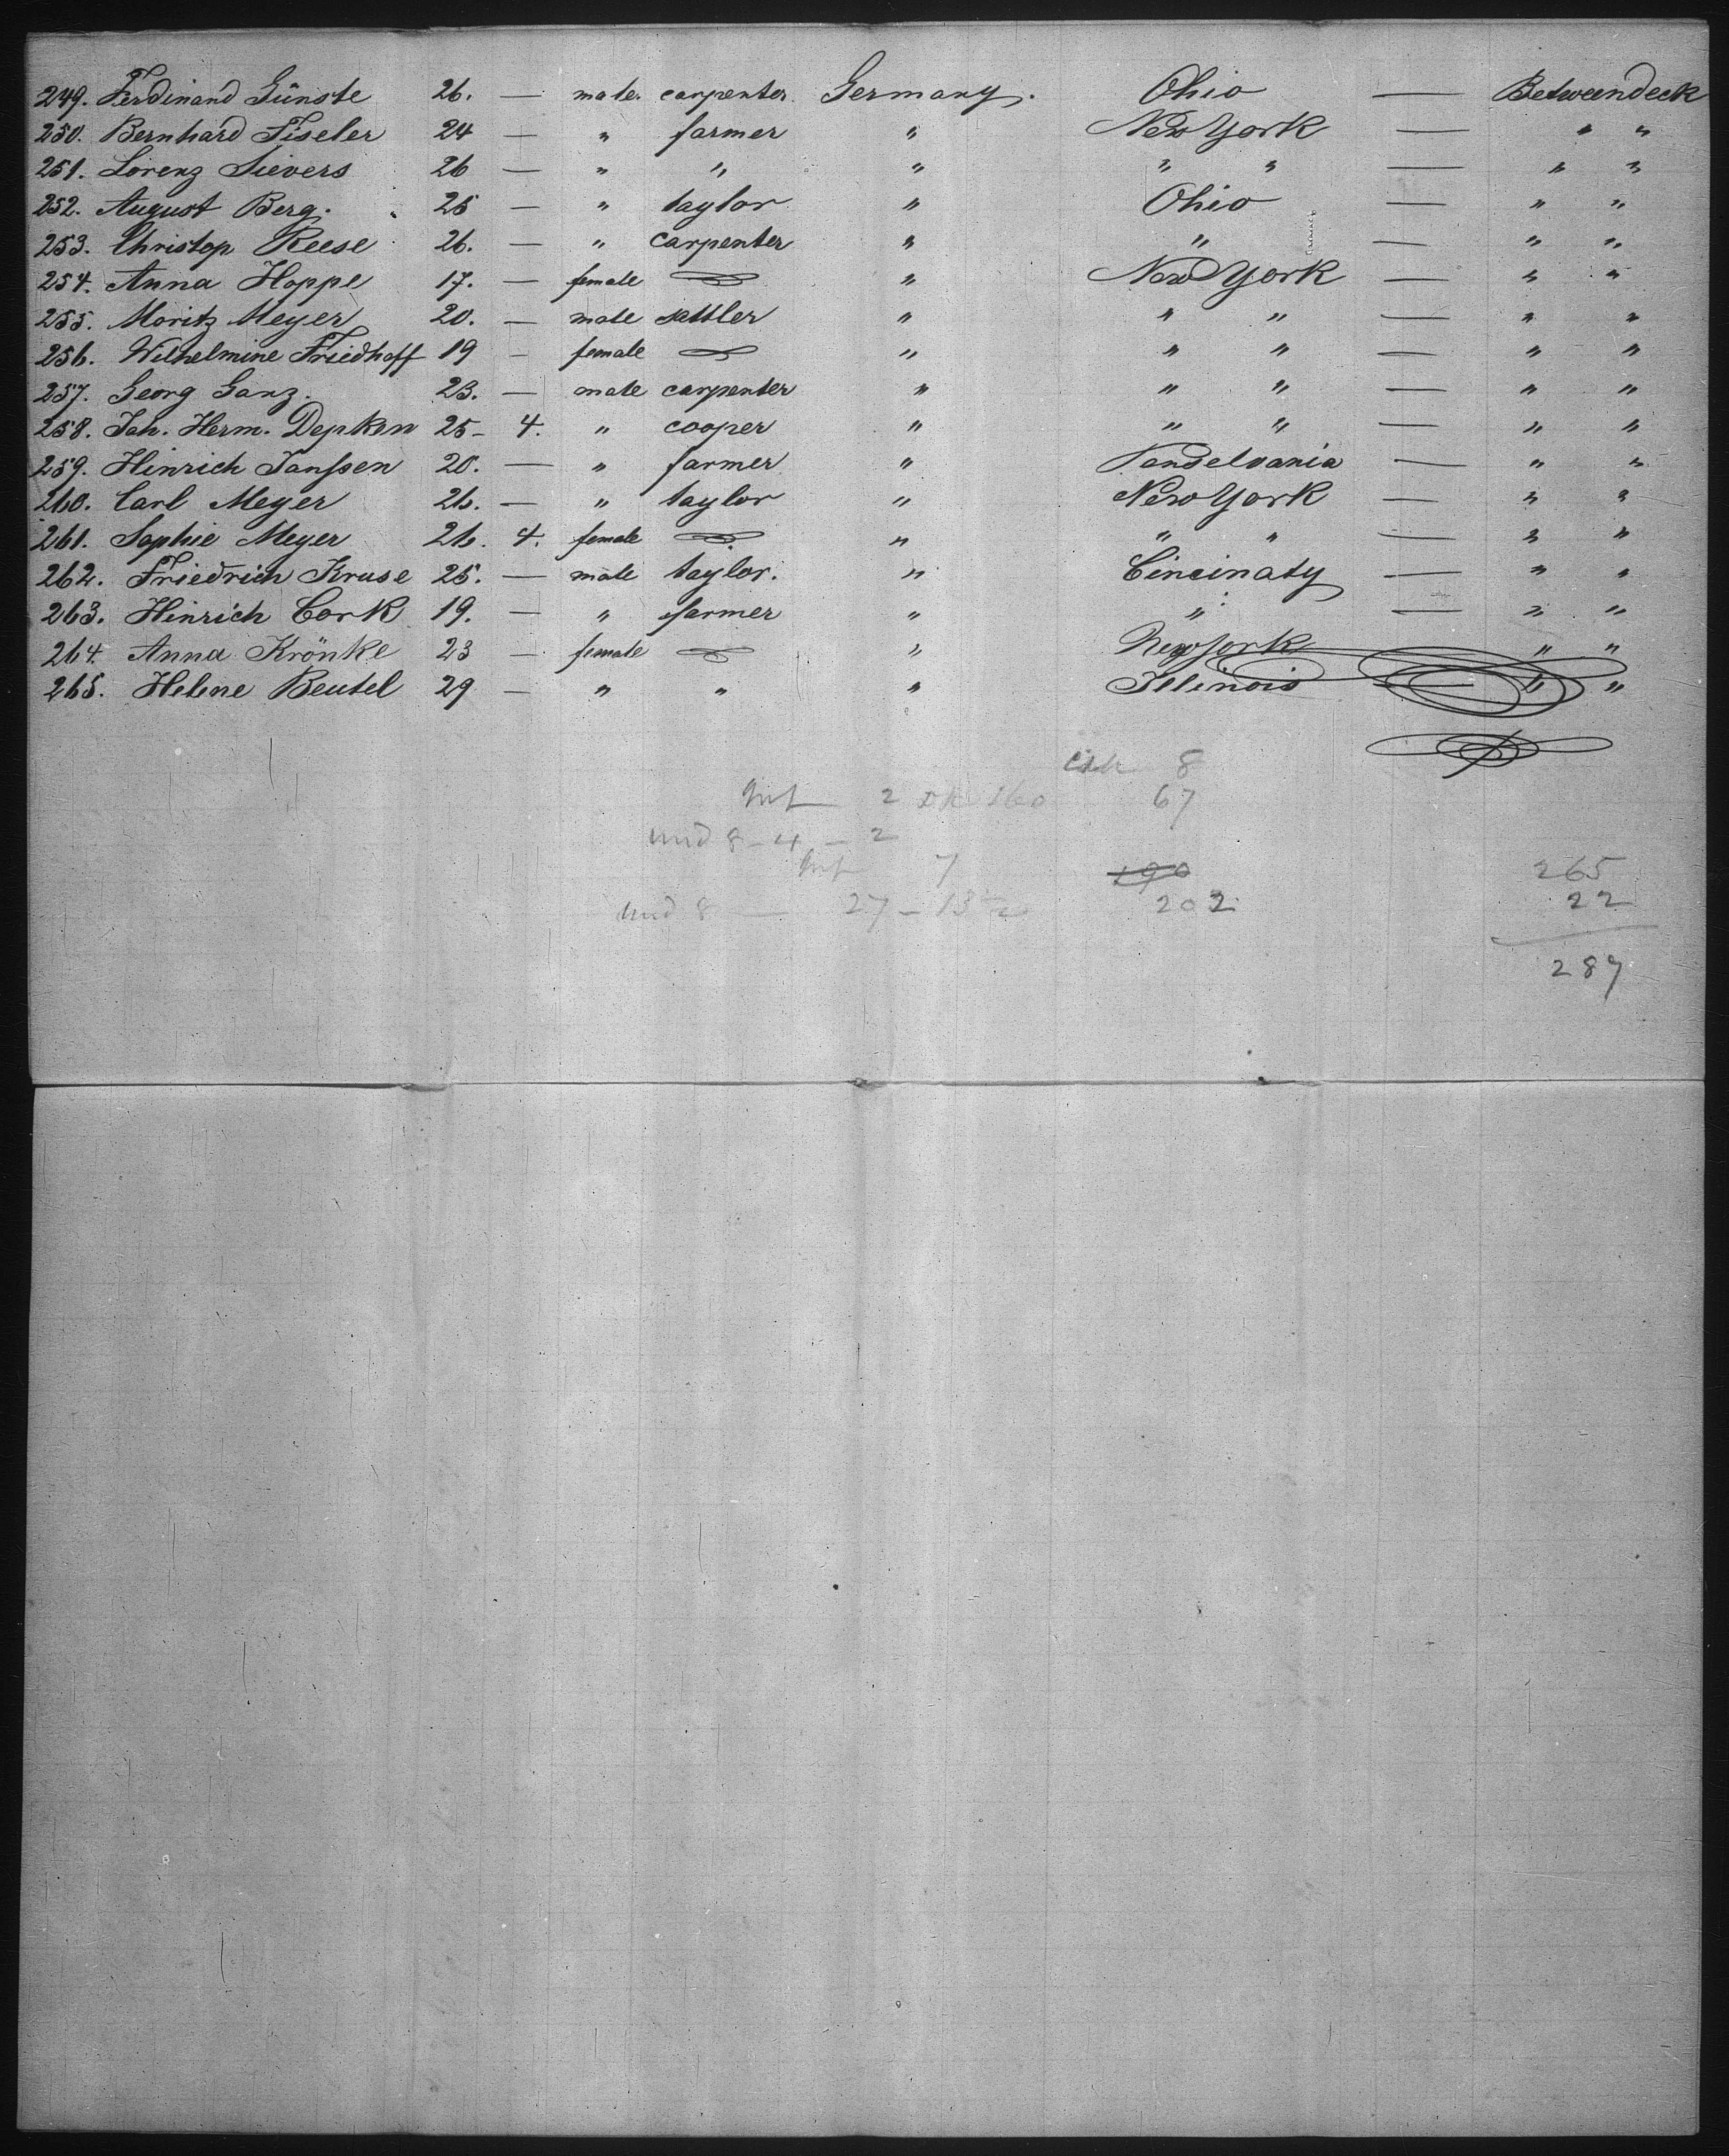 249. Ferdinand Günste 26. — male. carpenter. Germany. Ohio — Betweendeck
250. Bernhard Fiseler 24 — " farmer " New York — " "
251. Lorenz Sievers 26 — " " " " " — " "
252. August Berg. 25 — " taylor " Ohio — " "
253. Christop Reese 26. — " carpenter " " — " "
254. Anna Hoppe 17. — female — " New York — " "
255. Moritz Meyer 20. — male settler " " " — " "
256. Wilhelmine Friedhoff 19 — female — " " " — " "
257. Georg Ganz. 23. — male carpenter " " " — " "
258. Joh. Herm. Depken 25 - 4. " cooper " " " — " "
259. Hinrich Janssen 20. — " farmer " Panselvania — " "
260. Carl Meyer 26. — " taylor " New York — " "
261. Sophie Meyer 26. 4. female — " " " — " "
262. Friedrich Kruse 25. — male taylor. " Cincinaty — " "
263. Hinrich Cork 19. — " farmer " " — " "
264. Anna Krönke 23 — female — " New York " "
265. Helene Beutel 29 — " " " Illinois — " "
8
Inf 2 160 67
und 8 - 4 - 2
Inf 7 265
und 8 — 27 - 13½ 202 22
287